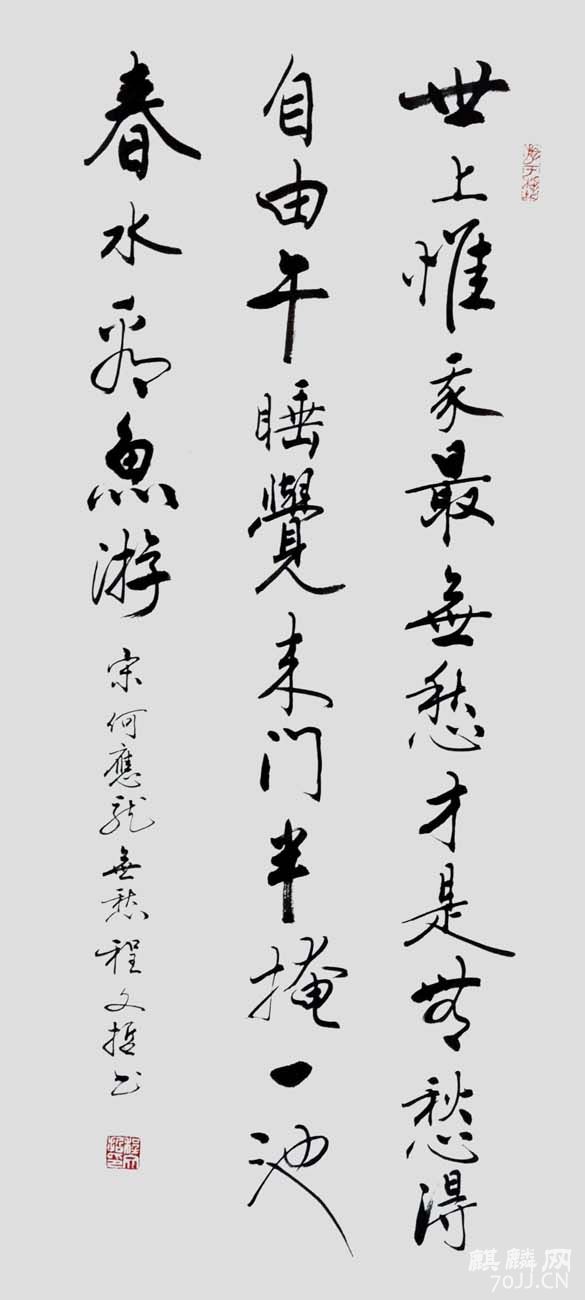 世上惟我最無愁才是無愁得
自由午睡覺来门半掩一池
春水看魚游
宋何應龍無愁程文哲书
麒麟网
70JJ.CN